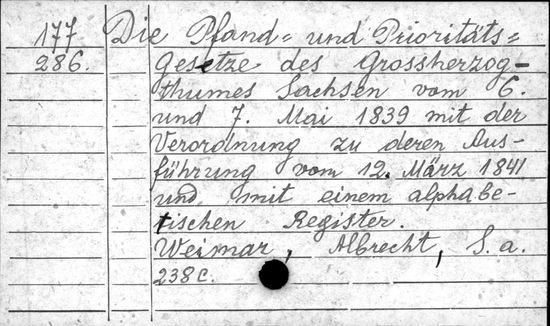 177
286.
Die Pfand= und Prioritäts=
Gesetze des Grossherzog-
thumes Sachsen vom 6.
und 7. Mai 1839 mit der
Verordnung zu deren Aus-
führung vom 12. März 1841
und mit einem alphabe-
tischen Register.
Weimar, Albrecht, S.a.
238 c.